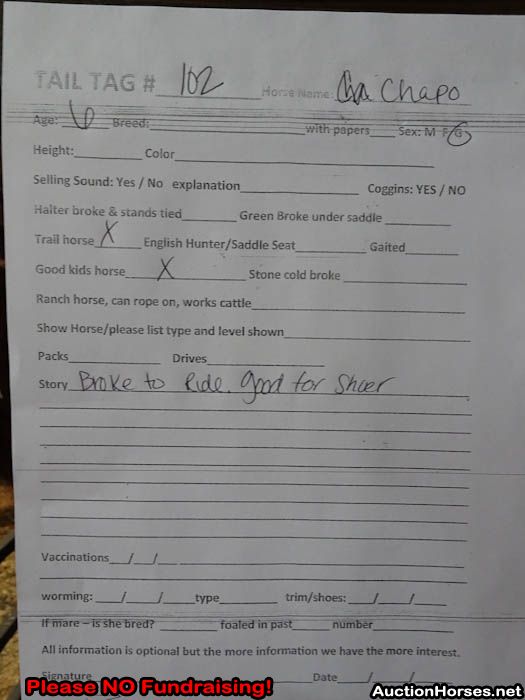 TAIL TAG # 102 Horse Name: Cha Chapo
Age: 6 Breed:____ with papers____ Sex: M F G
Height:____ Color____
Selling Sound: Yes / No explanation____ Coggins: YES / NO
Halter broke & stands tied____ Green Broke under saddle____
Trail horse X English Hunter/Saddle Seat____ Gaited____
Good kids horse X Stone cold broke____
Ranch horse, can rope on, works cattle____
Show Horse/please list type and level shown____
Packs____ Drives____
Story Broke to Ride. good for Shoer
Vaccinations__/__/__
worming:__/__/__type____ trim/shoes:__/__/__
If mare – is she bred?____ foaled in past____ number____
All information is optional but the more information we have the more interest.
Signature Date__/__/__
Please NO Fundraising!
AuctionHorses.net